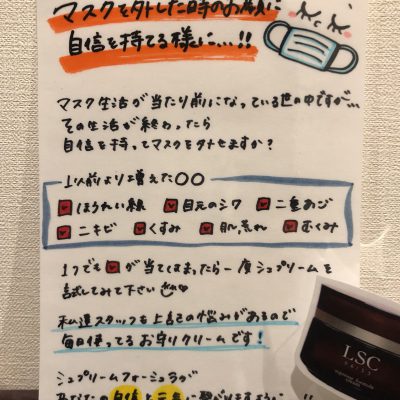 マスクを外した時のお顔に
自信を持てる様に…!!
マスク生活が当たり前になっている世の中ですが…
その生活が終わったら
自信を持ってマスクをはずせますか?
以前より増えた○○
ほうれい線 目元のシワ 二重あご
ニキビ くすみ 肌荒れ むくみ
1つでも が当てはまったら一度シュプリームを
試してみて下さい
私達スタッフも上記の悩みがあるので
毎日使ってるお守りクリームです!
シュプリームフォーミュラが
あなたの自信と元気に繋がりますように…!!
LSC